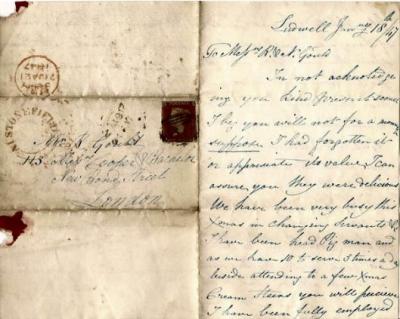 Ludwell Jany 18th /47
To Messrs R & N Gould
In not acknoledg
ing you kind present sooner
I beg you will not for a mom
suppose I had forgotten it
or appreciate its value I can
assure you they were delicious
We have been very busy this
Xmas in changing Servants &c
I have been head Pig man and
as we have 10 to serve 3 times a d
beside attending to a few Xmas
Cream you will perceive
I have been fully employed
Gould
New Bond Street
London